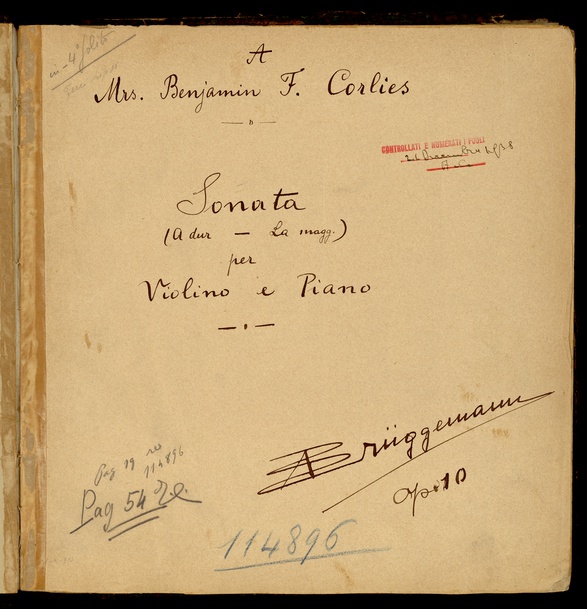 in-4º
A
Mrs. Benjamin F. Corlies
CONTROLLATI E NUMERATI I FOGLI
Sonata
(A dur — La magg.)
per
Violino e Piano
ABrüggemann
Op: 10
Pag 19
114896
Pag 54
114896